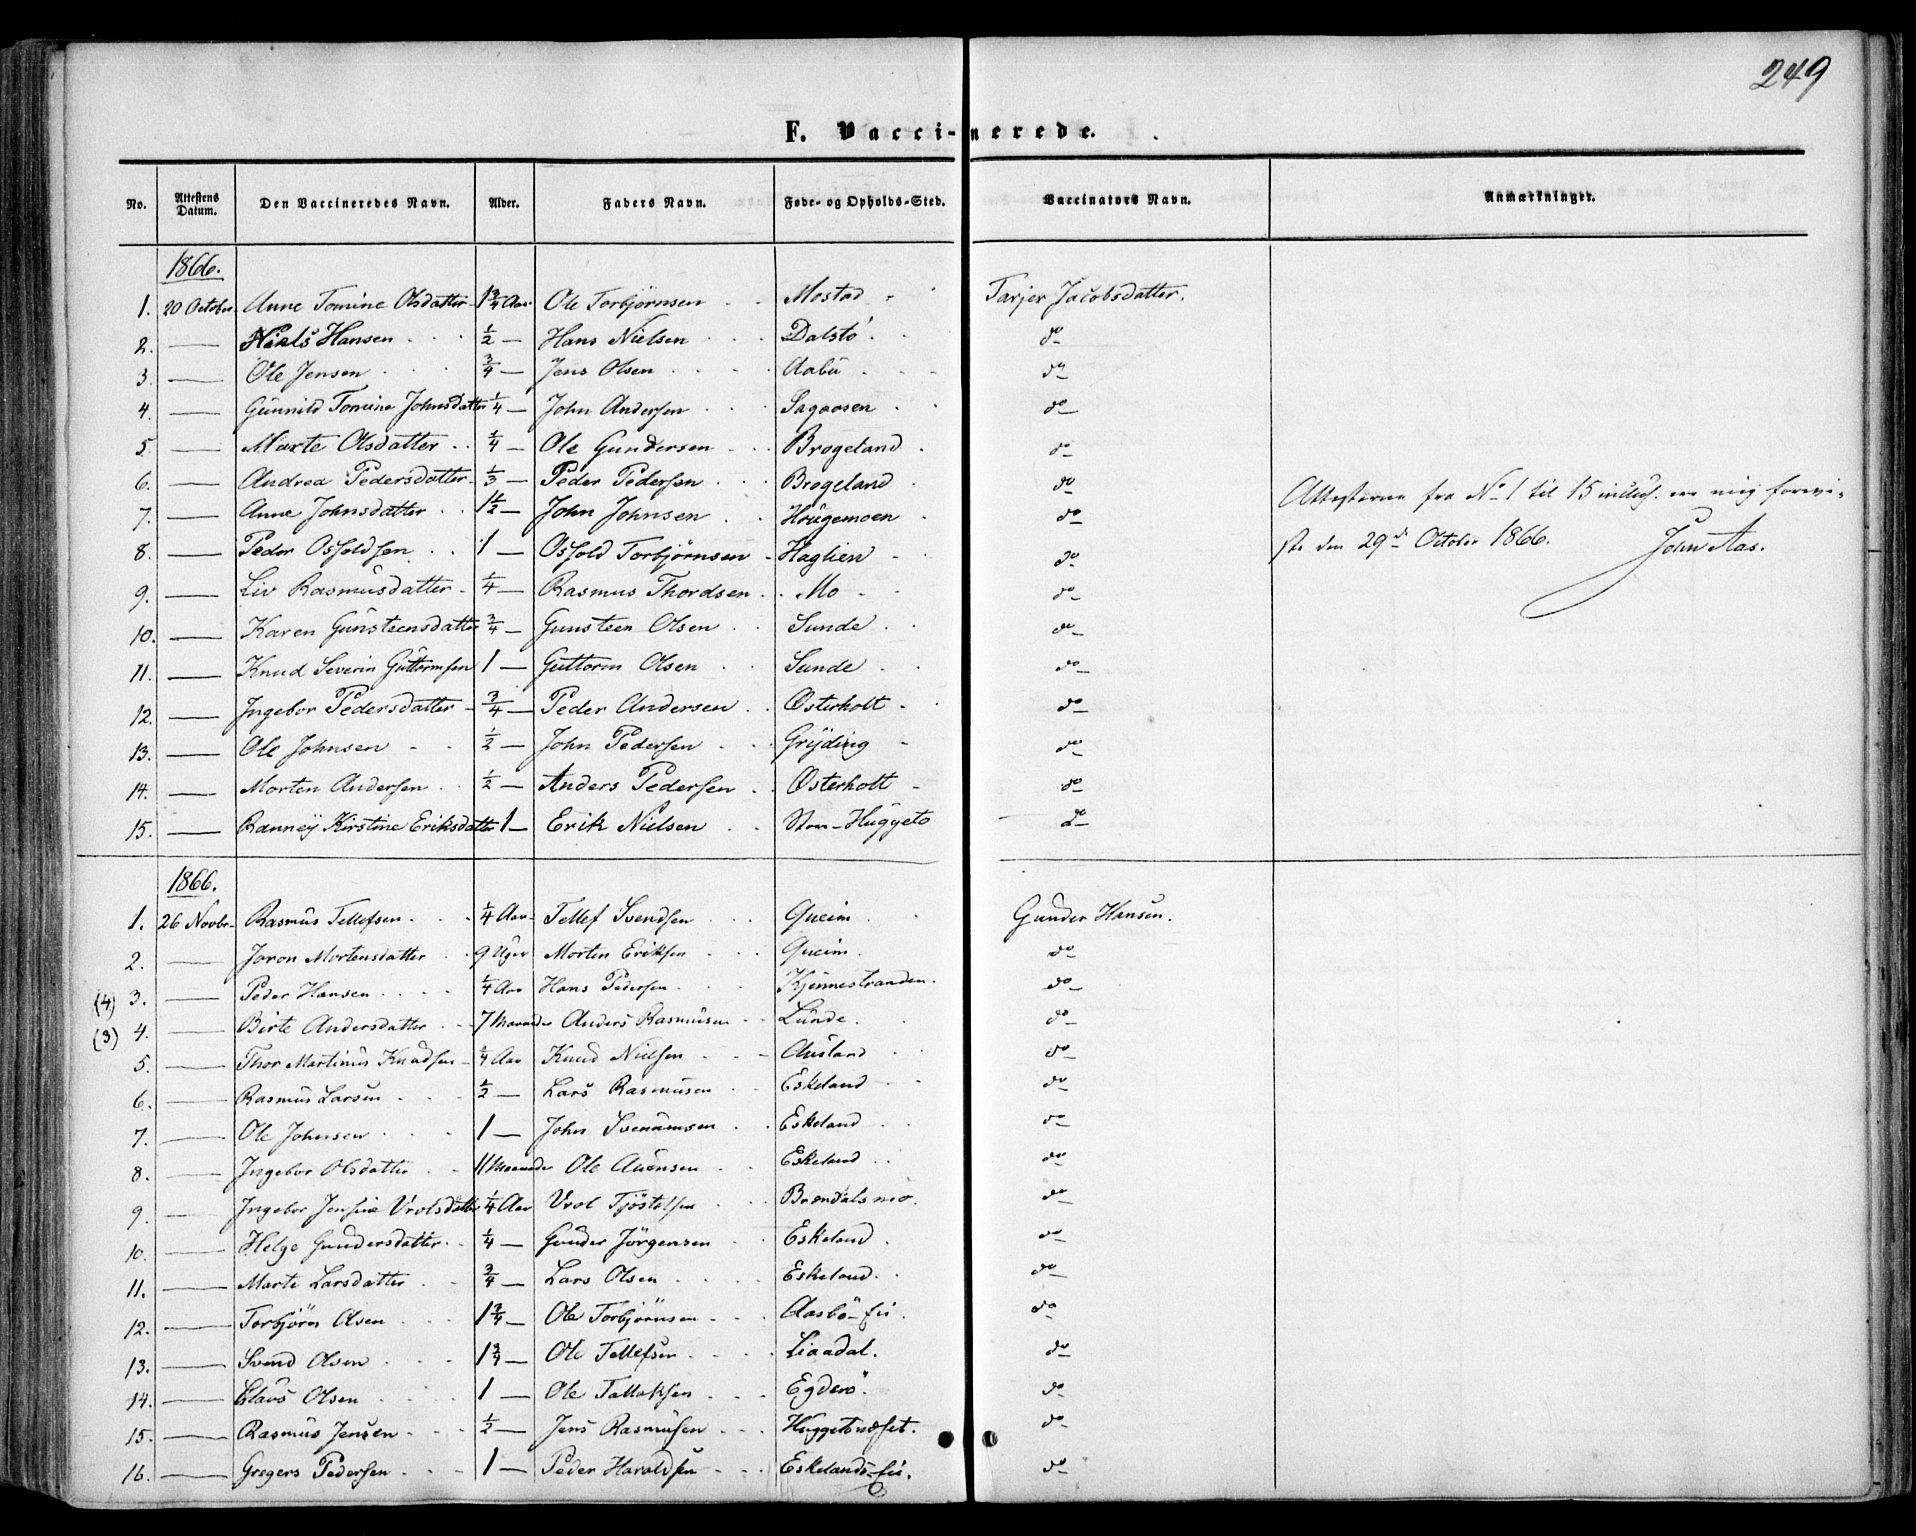 249
F. Vaccinerede.
No. Attestens Datum. Den Vaccineredes Navn. Alder. Faders Navn. Føde- og Opholds-Sted. Vaccinators Navn. Anmærkninger.
1866.
1. 20 October Anne Tomine Olsdatter 1 3/4 Aar Ole Torbjörnsen Mostad Tarjer Jacobsdatter.
2. — Niels Hansen 1/2 — Hans Nielsen Dalstö do
3. — Ole Jensen 3/4 — Jens Olsen Aabu do
4. — Gunnild Tomine Johnsdatter 1/4 — John Andersen Sagaasen do
5. — Marte Olsdatter 1/4 — Ole Gundersen Brogeland do
6. — Andrea Pedersdatter 1/3 — Peder Pedersen Brogeland do
7. — Anne Johnsdatter 1 1/2 — John Johnsen Hougemoen do
8. — Peder Osfoldsen 1 — Osfold Torbjörnsen Haglien do
9. — Liv Rasmusdatter 1/4 — Rasmus Thordsen Mo do
10. — Karen Gunsteensdatter 3/4 — Gunsteen Olsen Sunde do
11. — Knud Severin Guttormsen 1 — Guttorm Olsen Sunde do
12. — Ingebor Pedersdatter 3/4 — Peder Andersen Østerholt do
13. — Ole Johnsen 1/2 — John Pedersen Gryding do
14. — Morten Andersen 1/2 — Anders Pedersen Østerholt do
15. — Ranney Kirstine Eriksdatter 1 — Erik Nielsen Huggeto do
Attesterne fra No 1 til 15 inclus. ere mig forevi-
ste den 29de October 1866. John Aas.
1866.
1. 26 Novbr Rasmus Tellefsen 1/4 Aar Tellef Svendsen Queim Gunder Hansen.
2. — Joron Mortensdatter 9 Uger Morten Eriksen Queim. do
(4) 3. — Peder Hansen 1/4 Aar Hans Pedersen Kjennestranden. do
(3) 4. — Birte Andersdatter 7 Maaneder Anders Rasmusen Lunde. do
5. — Thor Martinius Knudsen 1/4 Aar Knud Nielsen Ausland do
6. — Rasmus Larsen 1/2 — Lars Rasmusen Eskeland do
7. — Ole Johnsen 1 — John Eskeland do
8. — Ingebor Olsdatter 11 Maaneder Ole Auensen Eskeland do
9. — Ingebor Jensine Vrolsdatter 1/4 Aar Vrol Tjöstelsen Brændalsmo. do
10. — Helge Gundersdatter 1/4 — Gunder Jörgensen Eskeland do
11. — Marte Larsdatter 3/4 — Lars Olsen Eskeland. do
12. — Torbjörn Olsen 1 3/4 — Ole Torbjörnsen Aasbö-fié. do
13. — Svend Olsen 1 3/4 — Ole Tellefsen Liaadal. do
14. — Claus Olsen 1 — Ole Tallaksen Egderö. do
15. — Rasmus Jensen 1/2 — Jens Rasmusen Huggetonæset. do
16. — Gregers Pedersen 1 — Peder Haroldsen Eskelands-fié. do